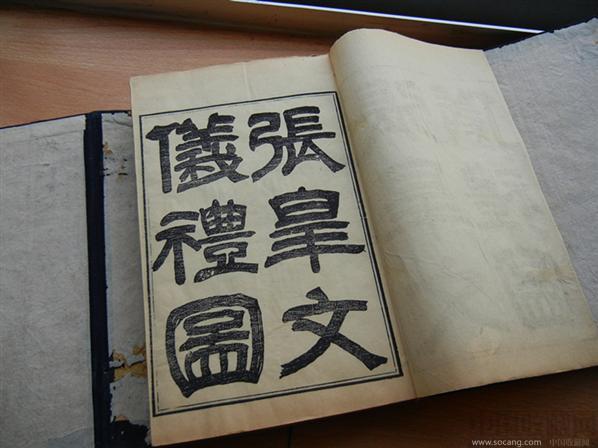 張皋文
儀禮圖
www.socang.com 中国收藏网